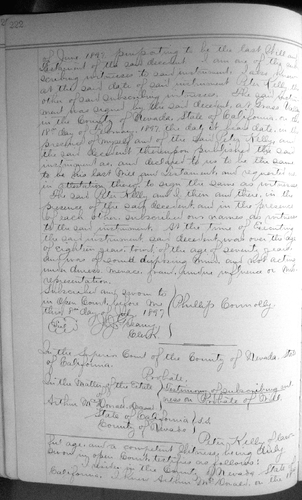 222
of June 1897, purporting to be the last Will and
Testament of the said decedent. I am one of the sub
scribing witnesses to said instrument. I also knew
at the said date of said instrument Peter Kelly the
other of said subscribing witnesses. The said instru
ment was signed by the said decedent, at Grass Valley
in the County of Nevada, State of California, on the
18th day of 1897, the date it bears date, in the
presence of myself and of the said Peter Kelly, and
the said decedent thereupon published the said
instrument as, and declared to us to be the same
to be his last Will and Testament, and requested us
in attestation thereof to sign the same as witnesses
The said Peter Kelly and I, then and there, in the
presence of the said decedent and in the presence
of each other, subscribed our names as witnesses
to the said instrument. At the time of Executing
the said instrument said decedent was over the age
of Eighteen years, to wit: of the age of years
and was of sound disposing mind and not acting
under duress, menace, fraud, undue influence or mis
representation.
Subscribed and sworn to
in Open Court, before me
this day of 1897
Clerk
Phillip Connolly
In the Superior Court of the County of Nevada, State
of California.
Probate.
In the Matter of the Estate
of
Arthur McDonald, Deceased
Testimony of subscribing wit
ness on Probate of Will.
State of California
County of Nevada
S.S.
Peter Kelly of law
ful age and a competent Witness, being duly
sworn in open Court, testifies as follows:
I reside in the County of Nevada, State of
California, I knew Arthur McDonald on the 18th